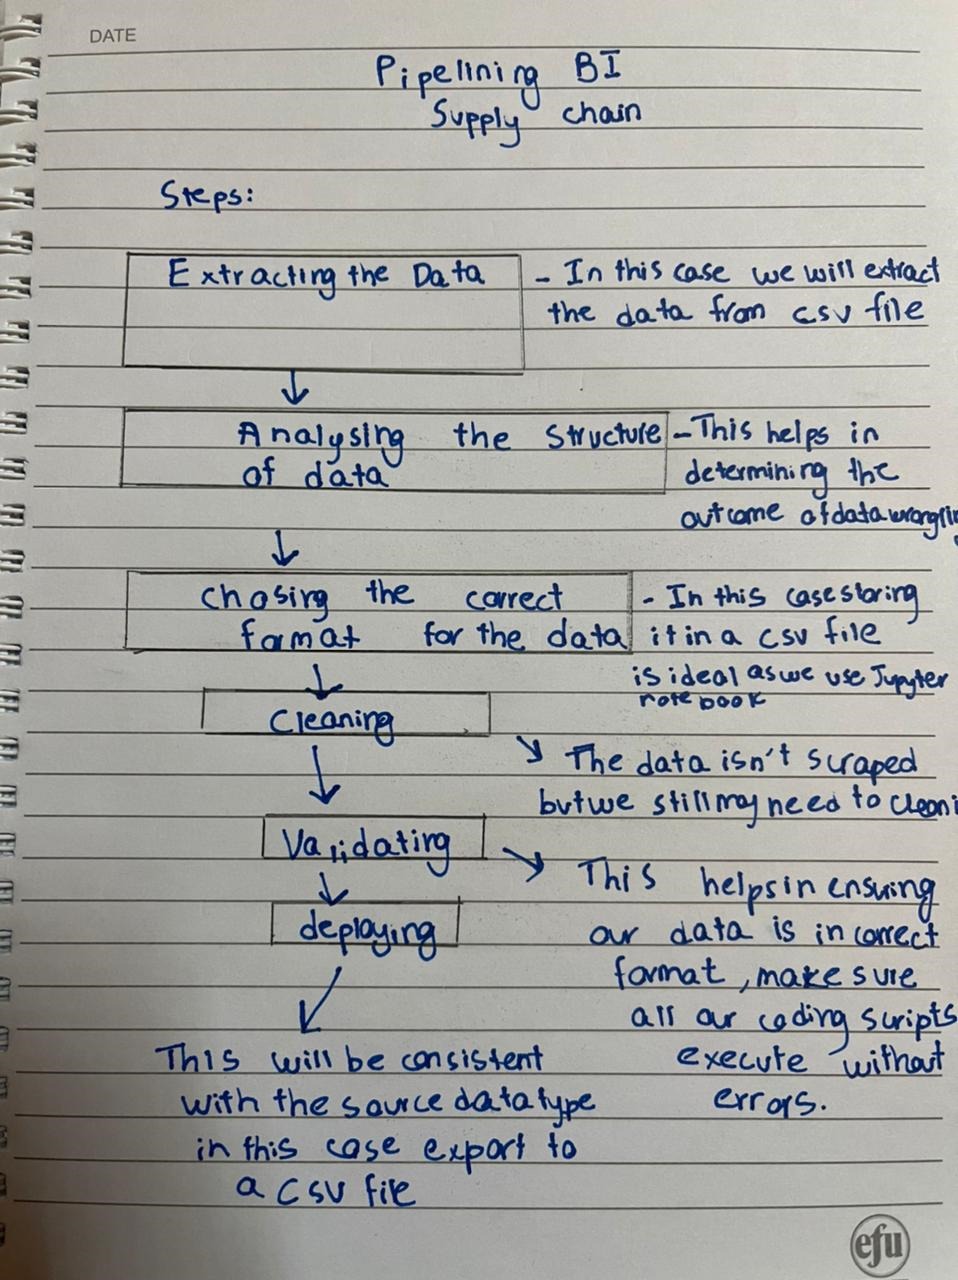 DATE
Pipelining BI
Supply chain
Steps:
Extracting the Data
- In this case we will extract
the data from csv file
Analysing the structure
of data
- This helps in
determining the
outcome of data
chosing the correct
format for the data
- In this case storing
it in a csv file
is ideal as we use Jupyter
note book
Cleaning
The data isn't scraped
but we still may need to
Validating
This helps in ensuring
our data is in correct
format, make sure
all our coding scripts
execute without
errors.
deploying
This will be consistent
with the source data type
in this case export to
a csv file
efu